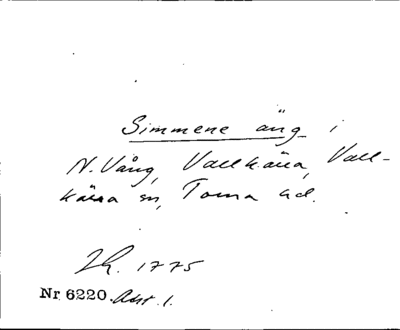 Simmene äng i
N. Vång, Vallkärra, Vall-
kärra sn, Torna hd.
1775
Nr 6220. Akt. 1.